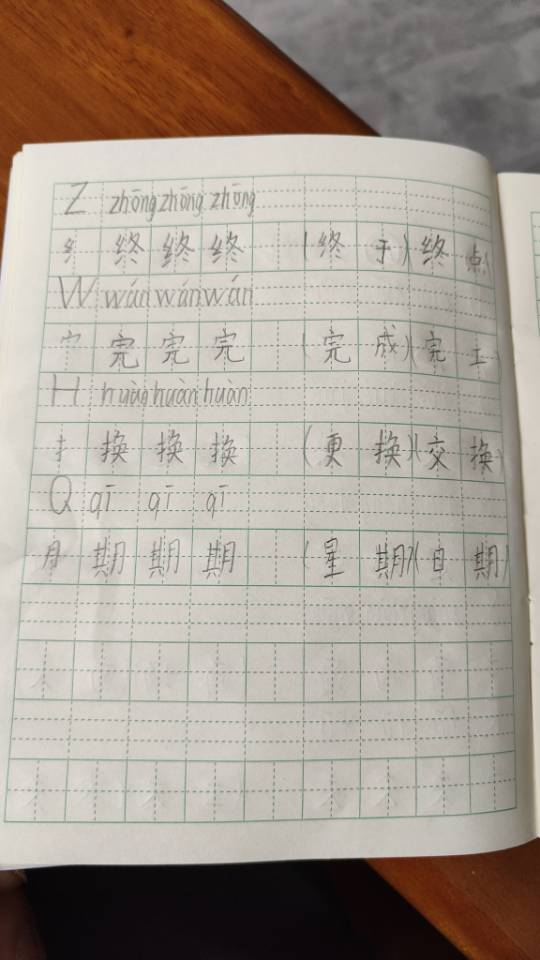 Z zhōng zhōng zhōng
纟 终 终 终 (终于)(终点)
W wán wán wán
宀 完 完 完 (完成)(完工)
H huàn huàn huàn
扌 换 换 换 (更换)(交换)
Q qī qī qī
月 期 期 期 (星期)(日期)